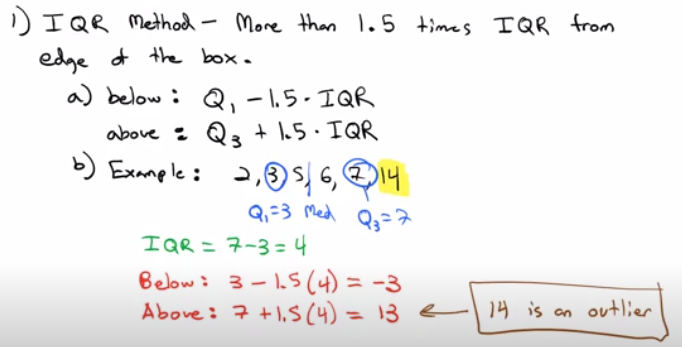 1) IQR Method – More than 1.5 times IQR from
edge of the box.
a) below: Q₁ – 1.5 · IQR
above: Q₃ + 1.5 · IQR
b) Example: 2, 3, 5, 6, 7, 14
Q₁=3 Med Q₃=7
IQR = 7-3 = 4
Below: 3 - 1.5(4) = -3
Above: 7 + 1.5(4) = 13 ← 14 is an outlier